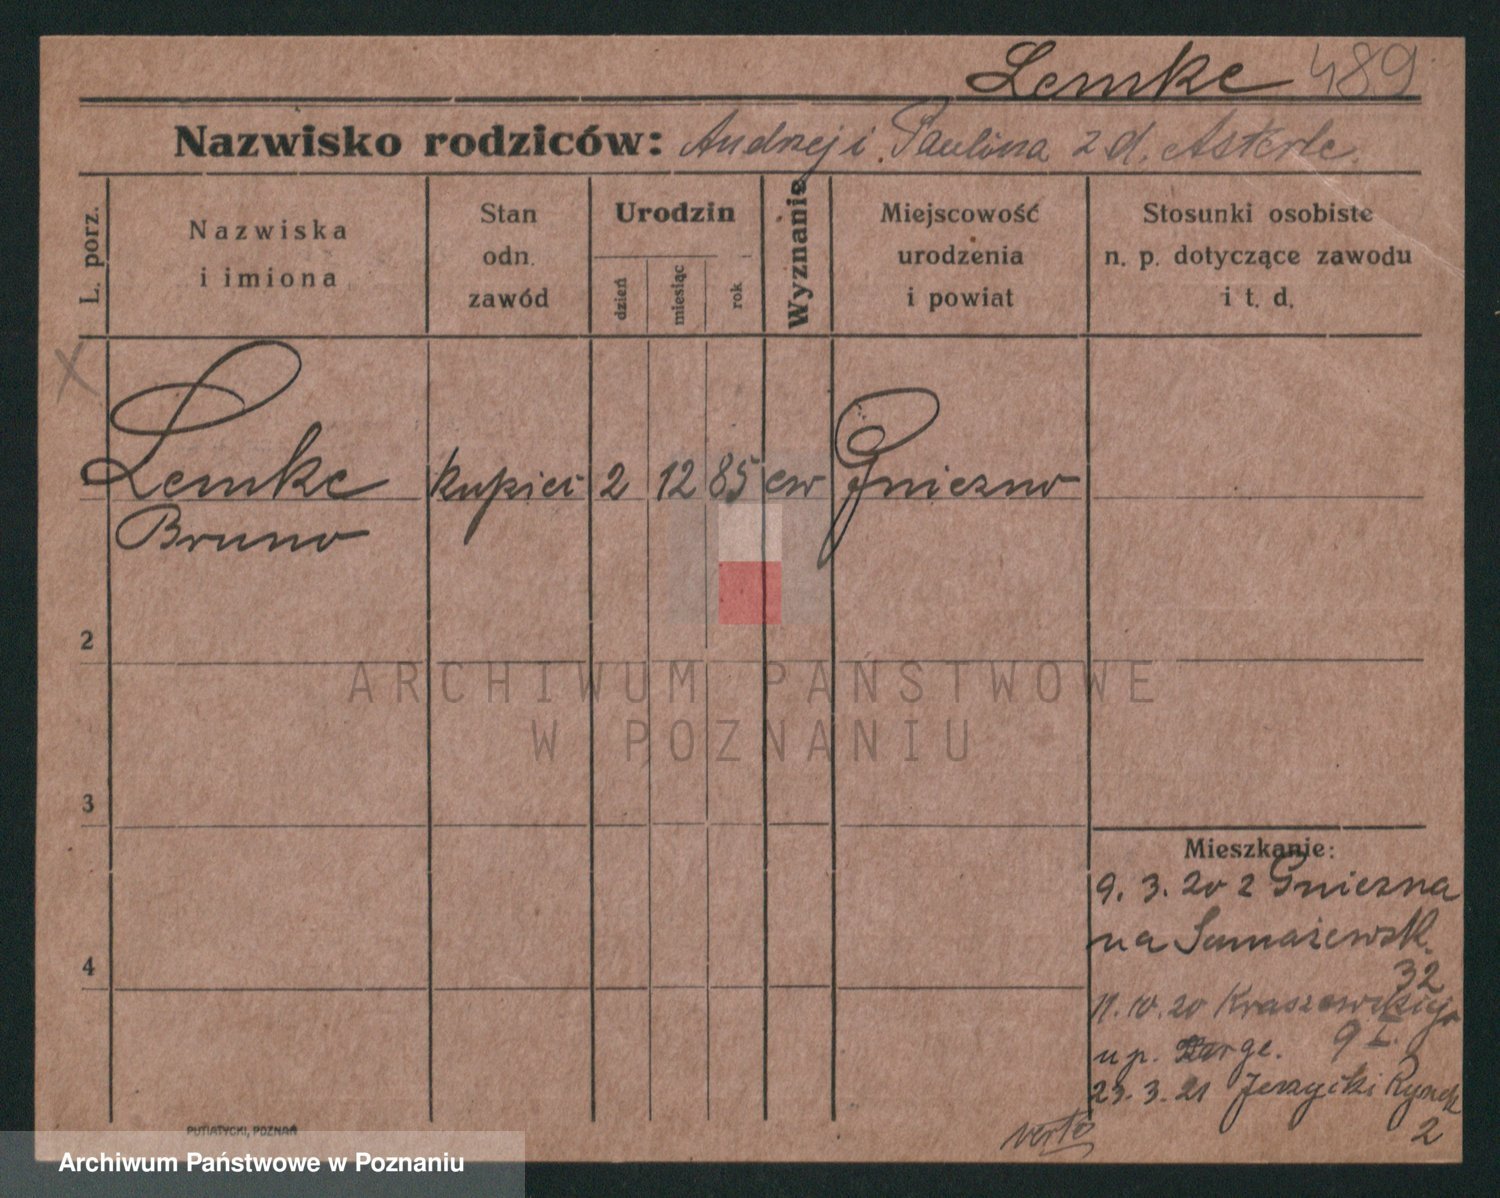 Lemke 489
Nazwisko rodziców: Andrzej i Paulina z d. Asterle
L. porz.
Nazwiska
i imiona
Stan
odn.
zawód
Urodzin
dzień
miesiąc
rok
Wyznanie
Miejscowość
urodzenia
i powiat
Stosunki osobiste
n. p. dotyczące zawodu
i t. d.
X
Lemke kupiec 2 12 85 ew Gniezno
Bruno
2
3
4
Mieszkanie:
9. 3. 20 z Gniezna
na
32
11. 10. 20 Kraszewskiego
9 I.
u p.
23. 3. 21 Jerzycki Rynek
2
verte
PUTIATYCKI, POZNAŃ
ARCHIWUM PAŃSTWOWE
W POZNANIU
Archiwum Państwowe w Poznaniu